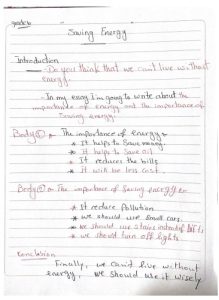 grade 6
Saving Energy
Introduction
- Do you think that we can't live without
energy.
- In my essay I'm going to write about the
importance of energy and the importance of
Saving energy.
Body ① The importance of energy
* It helps to save money.
* It helps to save oil
* It reduces the bills
* It will be less cost.
Body ② The importance of saving energy
* It reduce pollution
* we should use small cars.
* we should use stairs instead of lifts
* we should turn off lights
Conclusion
Finally, we can't live without
energy, we should use it wisely